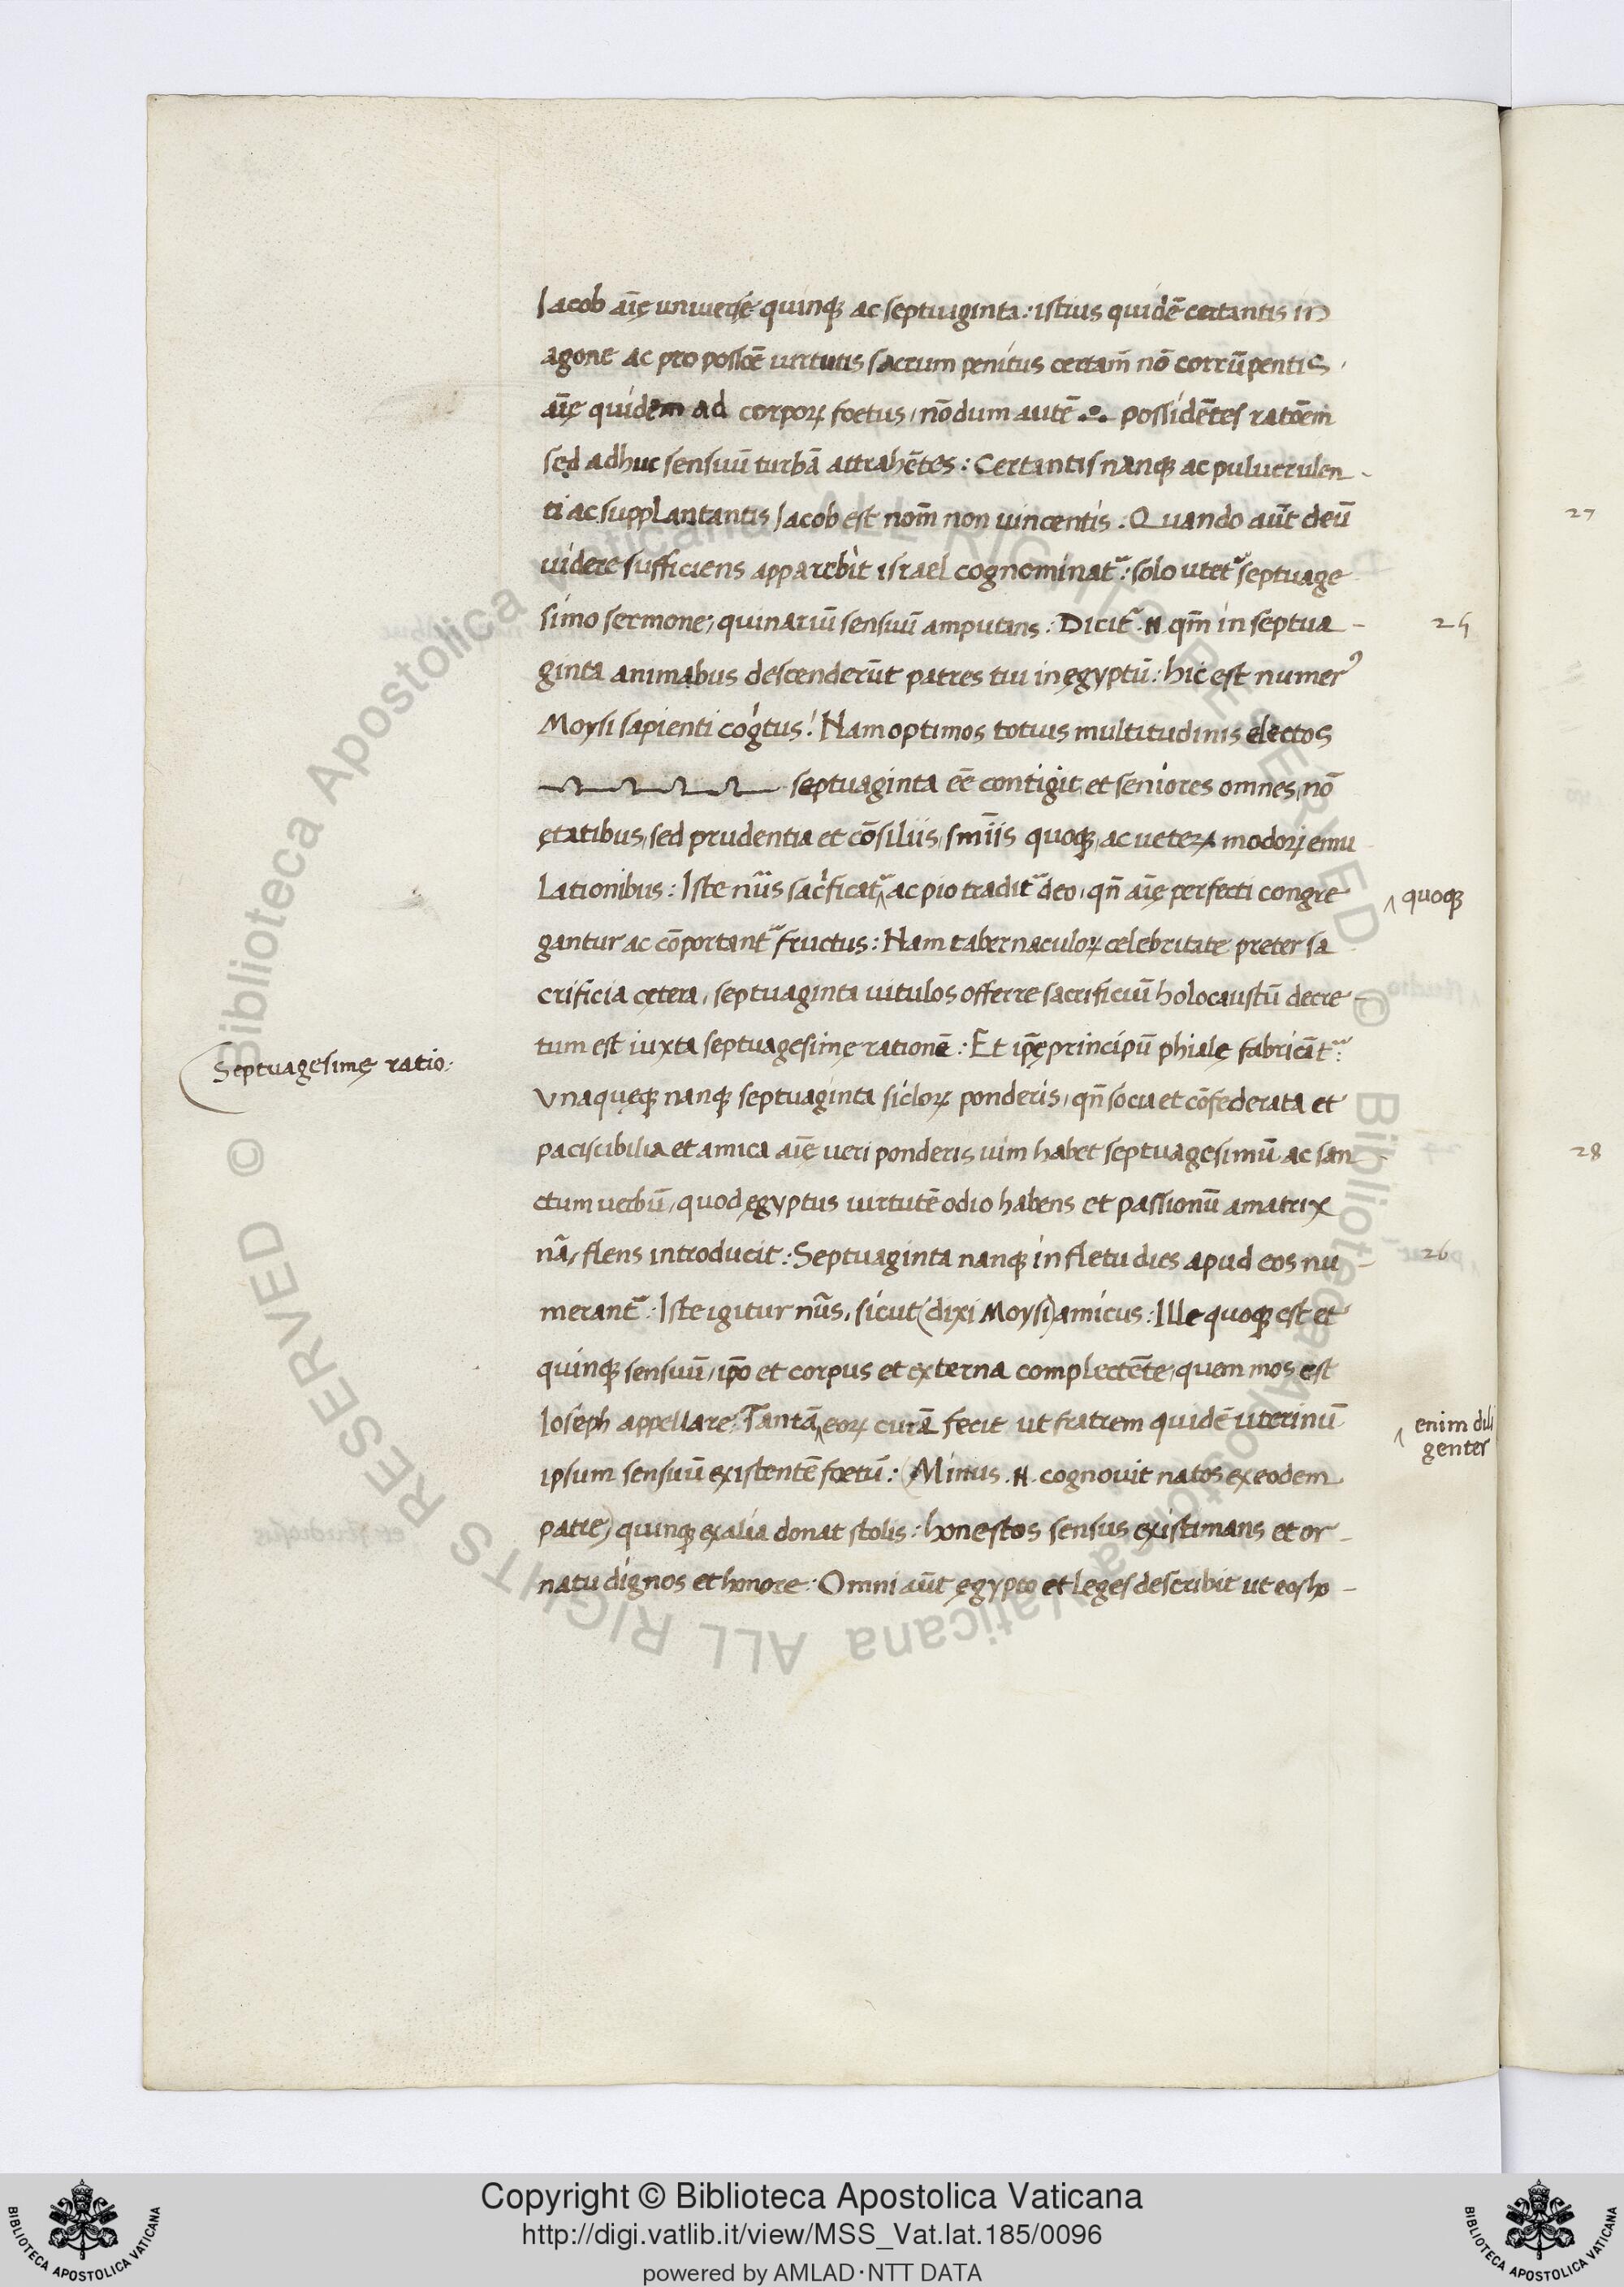 Jacob aīę uniuersę quinqꝫ ac septuaginta: istius quidē certantis in
agone ac pro possēē uirtutis sacrum penitus certam̄ nō corrūpentis,
aīę quidem ad corporꝝ foetus, nōdum autē possidētes ratōem
sed adhuc sensuū turbā attrahētes: Certantis nanqꝫ ac puluerulen-
ti ac supplantantis Jacob est nom̄ non uincentis: Quando aūt deū
uidere sufficiens apparebit israel cognominat᷑: solo utet᷑ septuage
simo sermone, quinariū sensuū amputans: Dicit᷑ .N. qm̄ in septua-
ginta animabus descenderūt patres tui in ęgyptū: hic est numerꝰ
Moysi sapienti cog̍tus! Nam optimos totius multitudinis electos
septuaginta eē contigit, et seniores omnes, nō
ętatibus, sed prudentia et cōsiliis, sn̄iis quoqꝫ, ac ueterꝝ modorꝝ emu
lationibus: Iste nūs sacrificat᷑ ^ ac pio tradit᷑ deo, qn̄ aīę perfecti congre
^ quoqꝫ
gantur ac cōportant᷑ fructus: Nam tabernaculorꝝ celebritate preter sa
crificia cętera, septuaginta uitulos offerre sacrificiū holocaustū decre-
tum est iuxta septuagesimę rationē: Et ip̄ę principū phialę fabricāt᷑:
Septuagesimę ratio:
Vnaquęqꝫ nanqꝫ septuaginta siclorꝝ ponderis, qn̄ socia et cōfederata et
paciscibilia et amica aīę ueri ponderis uim habet septuagesimū ac san
ctum uerbū, quod ęgyptus uirtutē odio habens et passionū amatrix
nā, flens introducit: Septuaginta nanqꝫ in fletu dies apud eos nu-
merant᷑: Iste igitur nūs, sicut (dixi Moysi) amicus: Ille quoqꝫ est et
quinqꝫ sensuū, ip̄o et corpus et externa complectēte, quem mos est
Joseph appellare: Tantā ^ eorꝝ curā fecit ut fratrem quidē uterinū
^ enim dili
genter
ipsum sensuū existentē foetū: (Minus .N. cognouit natos ex eodem
patre) quinqꝫ exalia donat stolis: honestos sensus existimans et or-
natu dignos et honore: Omni aūt ęgypto et leges describit ut eos ho-
25
26
27
28
Copyright © Biblioteca Apostolica Vaticana
http://digi.vatlib.it/view/MSS_Vat.lat.185/0096
powered by AMLAD·NTT DATA
© Biblioteca Apostolica Vaticana ALL RIGHTS RESERVED © Biblioteca Apostolica Vaticana ALL RIGHTS RESERVED
BIBLIOTECA APOSTOLICA VATICANA
BIBLIOTECA APOSTOLICA VATICANA